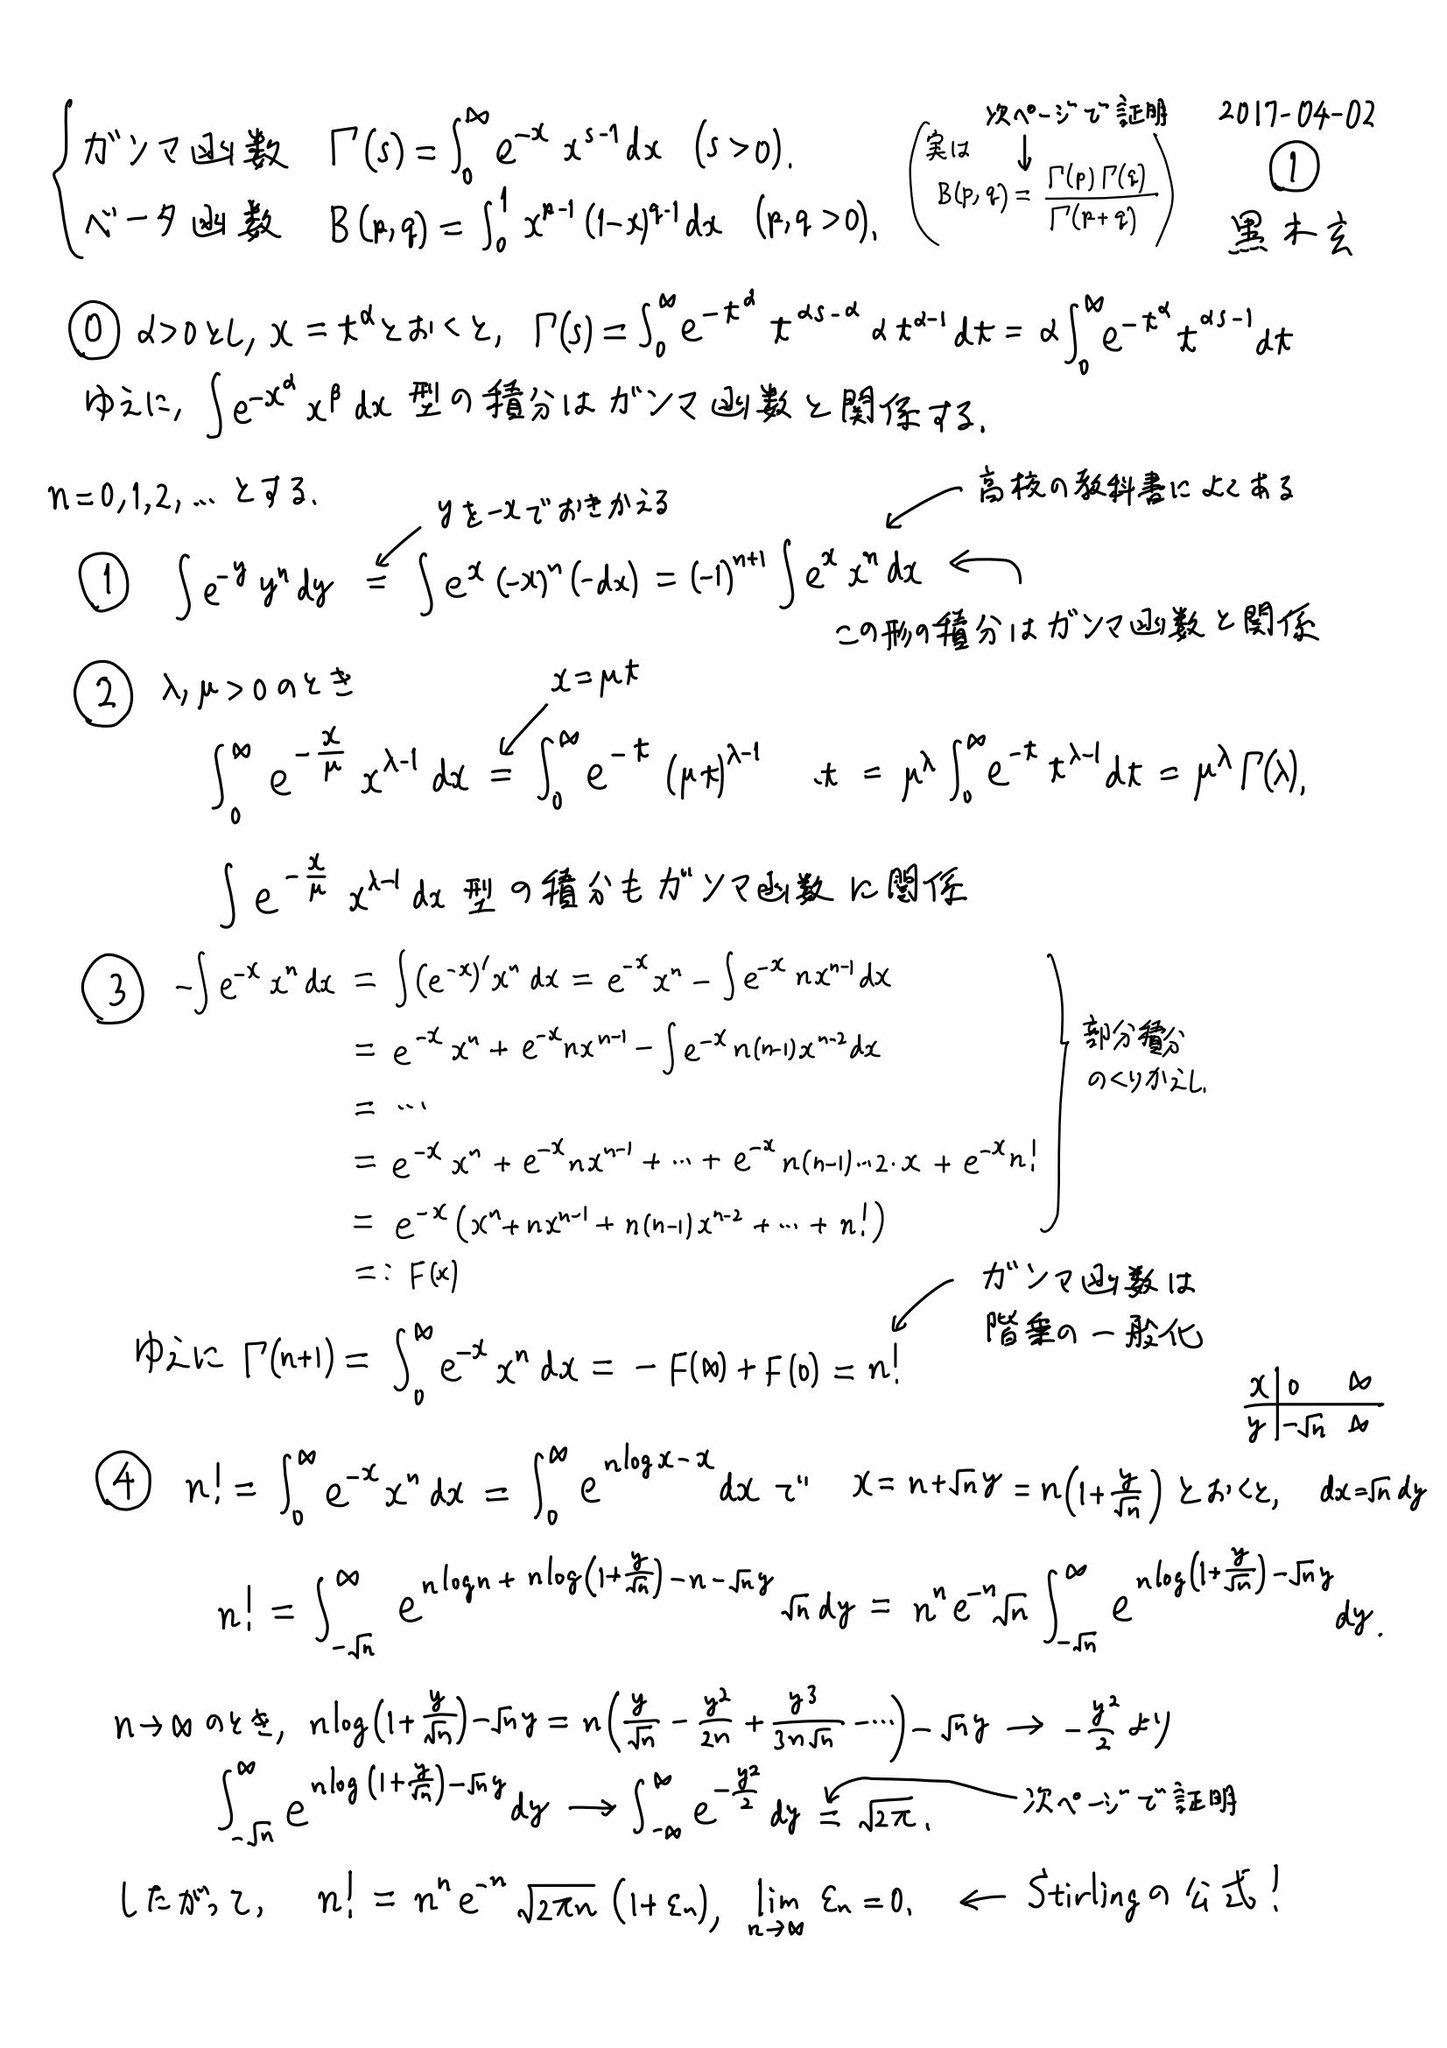 次ページで証明 2017-04-02
ガンマ函数 Γ(s) = ∫_0^∞ e^{-x} x^{s-1} dx (s>0).
(実は B(p,q) = Γ(p)Γ(q)/Γ(p+q))
①
ベータ函数 B(p,q) = ∫_0^1 x^{p-1} (1-x)^{q-1} dx (p,q>0).
黒木玄
⓪ α>0とし, x = t^αとおくと, Γ(s) = ∫_0^∞ e^{-t^α} t^{αs-α} α t^{α-1} dt = α∫_0^∞ e^{-t^α} t^{αs-1} dt
ゆえに, ∫e^{-x^α} x^β dx 型の積分はガンマ函数と関係する.
n=0,1,2,… とする.
yを-xでおきかえる
高校の教科書によくある
① ∫e^{-y} y^n dy = ∫e^x (-x)^n (-dx) = (-1)^{n+1} ∫e^x x^n dx
この形の積分はガンマ函数と関係
② λ,μ>0のとき
x=μt
∫_0^∞ e^{-x/μ} x^{λ-1} dx = ∫_0^∞ e^{-t} (μt)^{λ-1} t = μ^λ ∫_0^∞ e^{-t} t^{λ-1} dt = μ^λ Γ(λ).
∫e^{-x/μ} x^{λ-1} dx 型の積分もガンマ函数に関係
③ -∫e^{-x} x^n dx = ∫(e^{-x})' x^n dx = e^{-x} x^n - ∫e^{-x} n x^{n-1} dx
= e^{-x} x^n + e^{-x} n x^{n-1} - ∫e^{-x} n(n-1) x^{n-2} dx
部分積分
のくりかえし.
= …
= e^{-x} x^n + e^{-x} n x^{n-1} + … + e^{-x} n(n-1)…2・x + e^{-x} n!
= e^{-x} (x^n + n x^{n-1} + n(n-1) x^{n-2} + … + n!)
=: F(x)
ガンマ函数は
階乗の一般化
ゆえに Γ(n+1) = ∫_0^∞ e^{-x} x^n dx = -F(∞) + F(0) = n!
x | 0 ∞
y | -√n ∞
④ n! = ∫_0^∞ e^{-x} x^n dx = ∫_0^∞ e^{n log x - x} dx で x = n+√n y = n(1+y/√n) とおくと, dx=√n dy
n! = ∫_{-√n}^∞ e^{n log n + n log(1+y/√n) - n - √n y} √n dy = n^n e^{-n} √n ∫_{-√n}^∞ e^{n log(1+y/√n) - √n y} dy.
n→∞ のとき, n log(1+y/√n) - √n y = n(y/√n - y^2/2n + y^3/3n√n - …) - √n y → -y^2/2 より
∫_{-√n}^∞ e^{n log(1+y/√n) - √n y} dy → ∫_{-∞}^∞ e^{-y^2/2} dy = √2π.
次ページで証明
したがって, n! = n^n e^{-n} √2πn (1+ε_n), lim_{n→∞} ε_n = 0. ← Stirlingの公式!